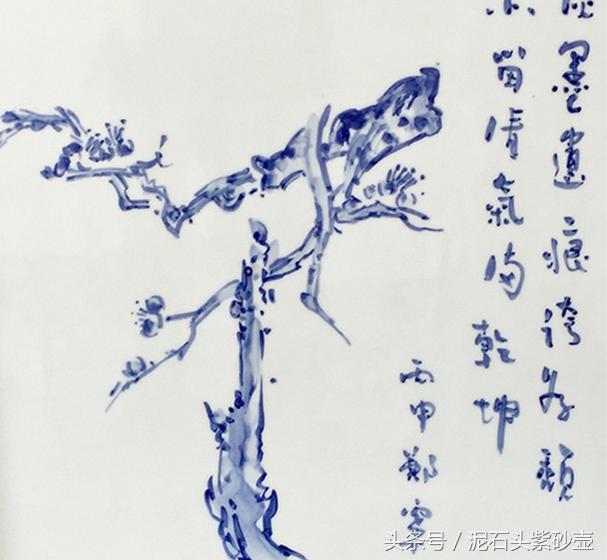 墨遺痕誇好顏
留清氣滿乾坤
丙申鄭雲
头条号 / 泥石头紫砂壶